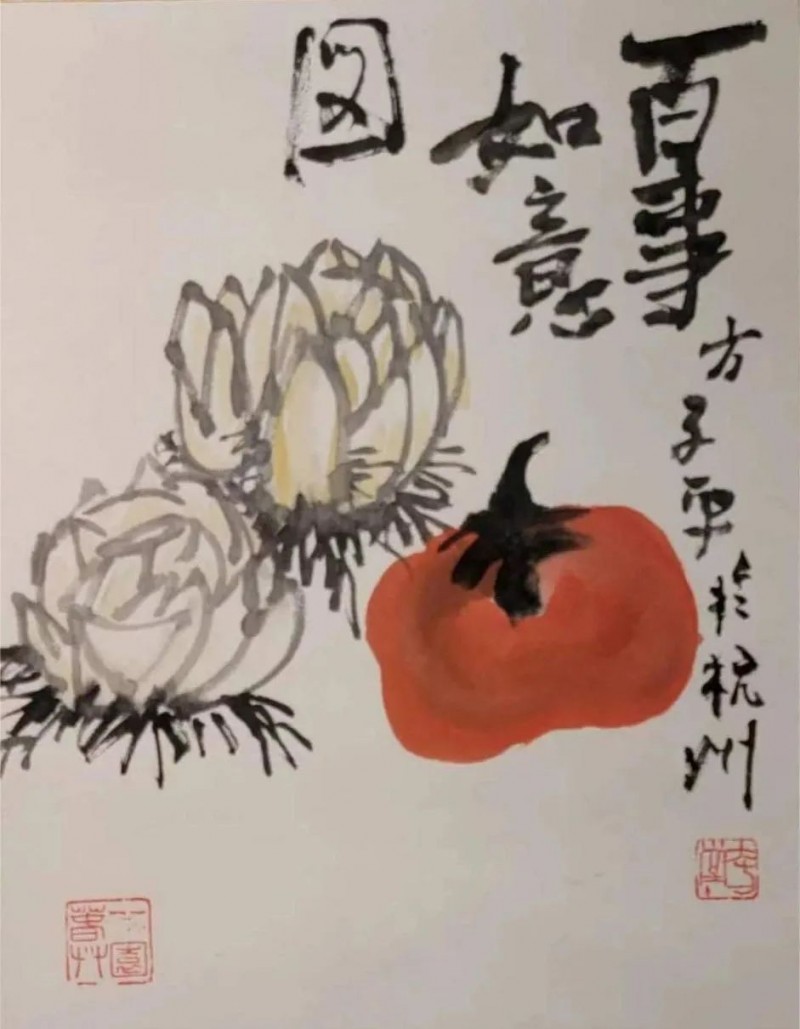 百事
如意
图
方子平於杭州